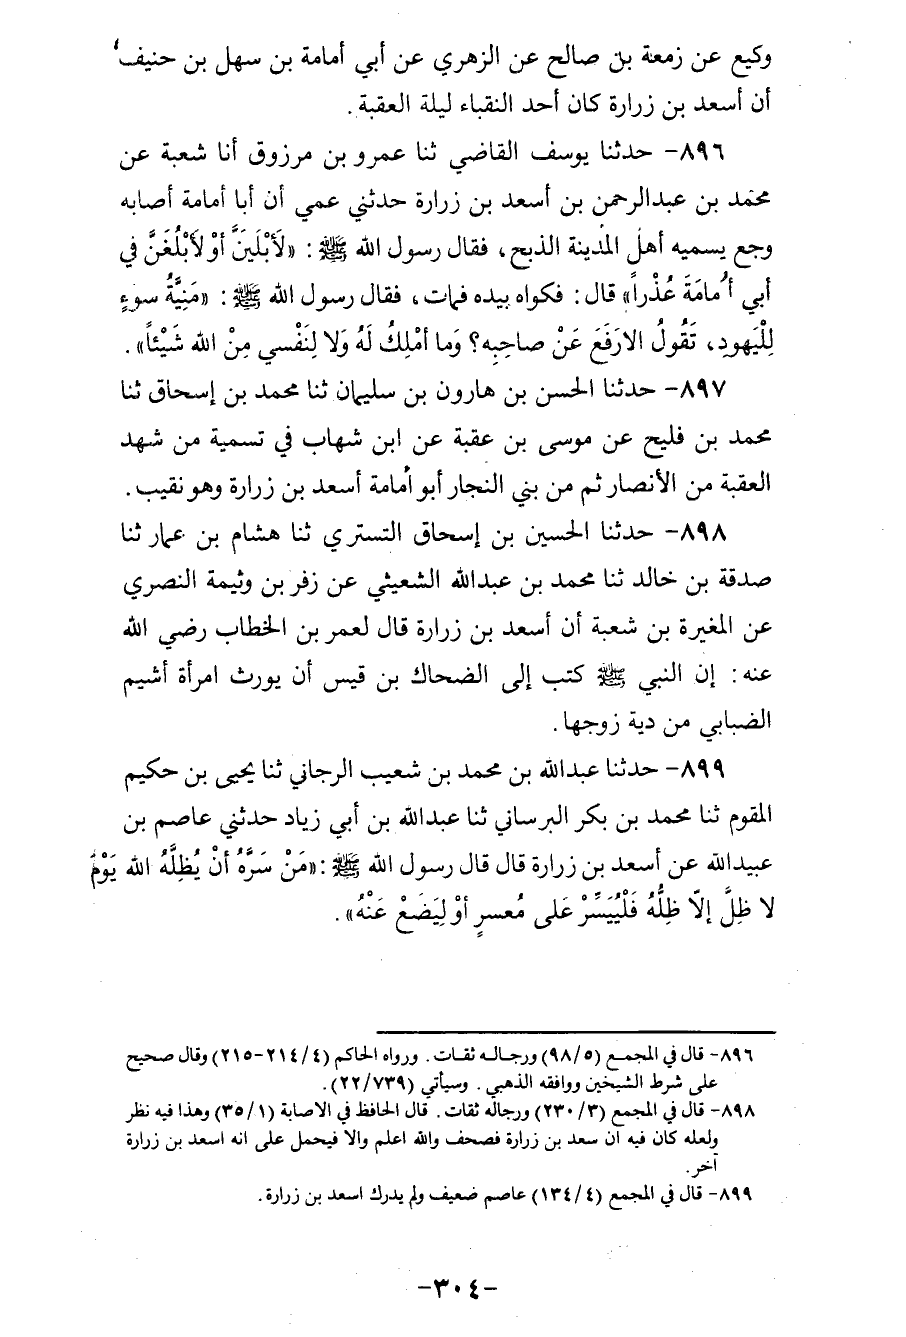 وكيع عن زمعة بن صالح عن الزهري عن أبي أمامة بن سهل بن حنيف،
أن أسعد بن زرارة كان أحد النقباء ليلة العقبة.
٨٩٦- حدثنا يوسف القاضي ثنا عمرو بن مرزوق أنا شعبة عن
محمد بن عبدالرحمن بن أسعد بن زرارة حدثني عمي أن أبا أمامة أصابه
وجع يسميه أهل المدينة الذبح، فقال رسول الله ﷺ: «لَأبْلَيَنَّ أوْ لَأبْلُغَنَّ في
أبي أُمامَةَ عُذْراً» قال: فكواه بيده فمات، فقال رسول الله ﷺ: «مَنِيَّةُ سوءٍ
لِلْيَهودِ، تَقُولُ الارَفَعَ عَنْ صاحِبِه؟ وَما أمْلِكُ لَهُ وَلا لِنَفْسي مِنْ الله شَيْئاً».
٨٩٧- حدثنا الحسن بن هارون بن سليمان ثنا محمد بن إسحاق ثنا
محمد بن فليح عن موسى بن عقبة عن ابن شهاب في تسمية من شهد
العقبة من الأنصار ثم من بني النجار أبو أُمامة أسعد بن زرارة وهو نقيب.
٨٩٨- حدثنا الحسين بن إسحاق التستري ثنا هشام بن عمار ثنا
صدقة بن خالد ثنا محمد بن عبدالله الشعيثي عن زفر بن وثيمة النصري
عن المغيرة بن شعبة أن أسعد بن زرارة قال لعمر بن الخطاب رضي الله
عنه: إن النبي ﷺ كتب إلى الضحاك بن قيس أن يورث امرأة أشيم
الضبابي من دية زوجها.
٨٩٩- حدثنا عبدالله بن محمد بن شعيب الرجاني ثنا يحيى بن حكيم
المقوم ثنا محمد بن بكر البرساني ثنا عبدالله بن أبي زياد حدثني عاصم بن
عبيدالله عن أسعد بن زرارة قال قال رسول الله ﷺ: «مَنْ سَرَّهُ أنْ يُظلَّهُ الله يَوْمَ
لا ظِلَّ إلّا ظِلُّهُ فَلْيُيَسِّرْ عَلى مُعسرٍ أوْ لِيَضَعْ عَنْهُ».
٨٩٦- قال في المجمع (٩٨/٥) ورجاله ثقات. ورواه الحاكم (٢١٤/٤-٢١٥) وقال صحيح
على شرط الشيخين ووافقه الذهبي. وسيأتي (٢٢/٧٣٩).
٨٩٨- قال في المجمع (٢٣٠/٣) ورجاله ثقات. قال الحافظ في الاصابة (٣٥/١) وهذا فيه نظر
ولعله كان فيه ان سعد بن زرارة فصحف والله اعلم والا فيحمل على انه اسعد بن زرارة
آخر.
٨٩٩- قال في المجمع (١٣٤/٤) عاصم ضعيف ولم يدرك اسعد بن زرارة.
-٣٠٤-